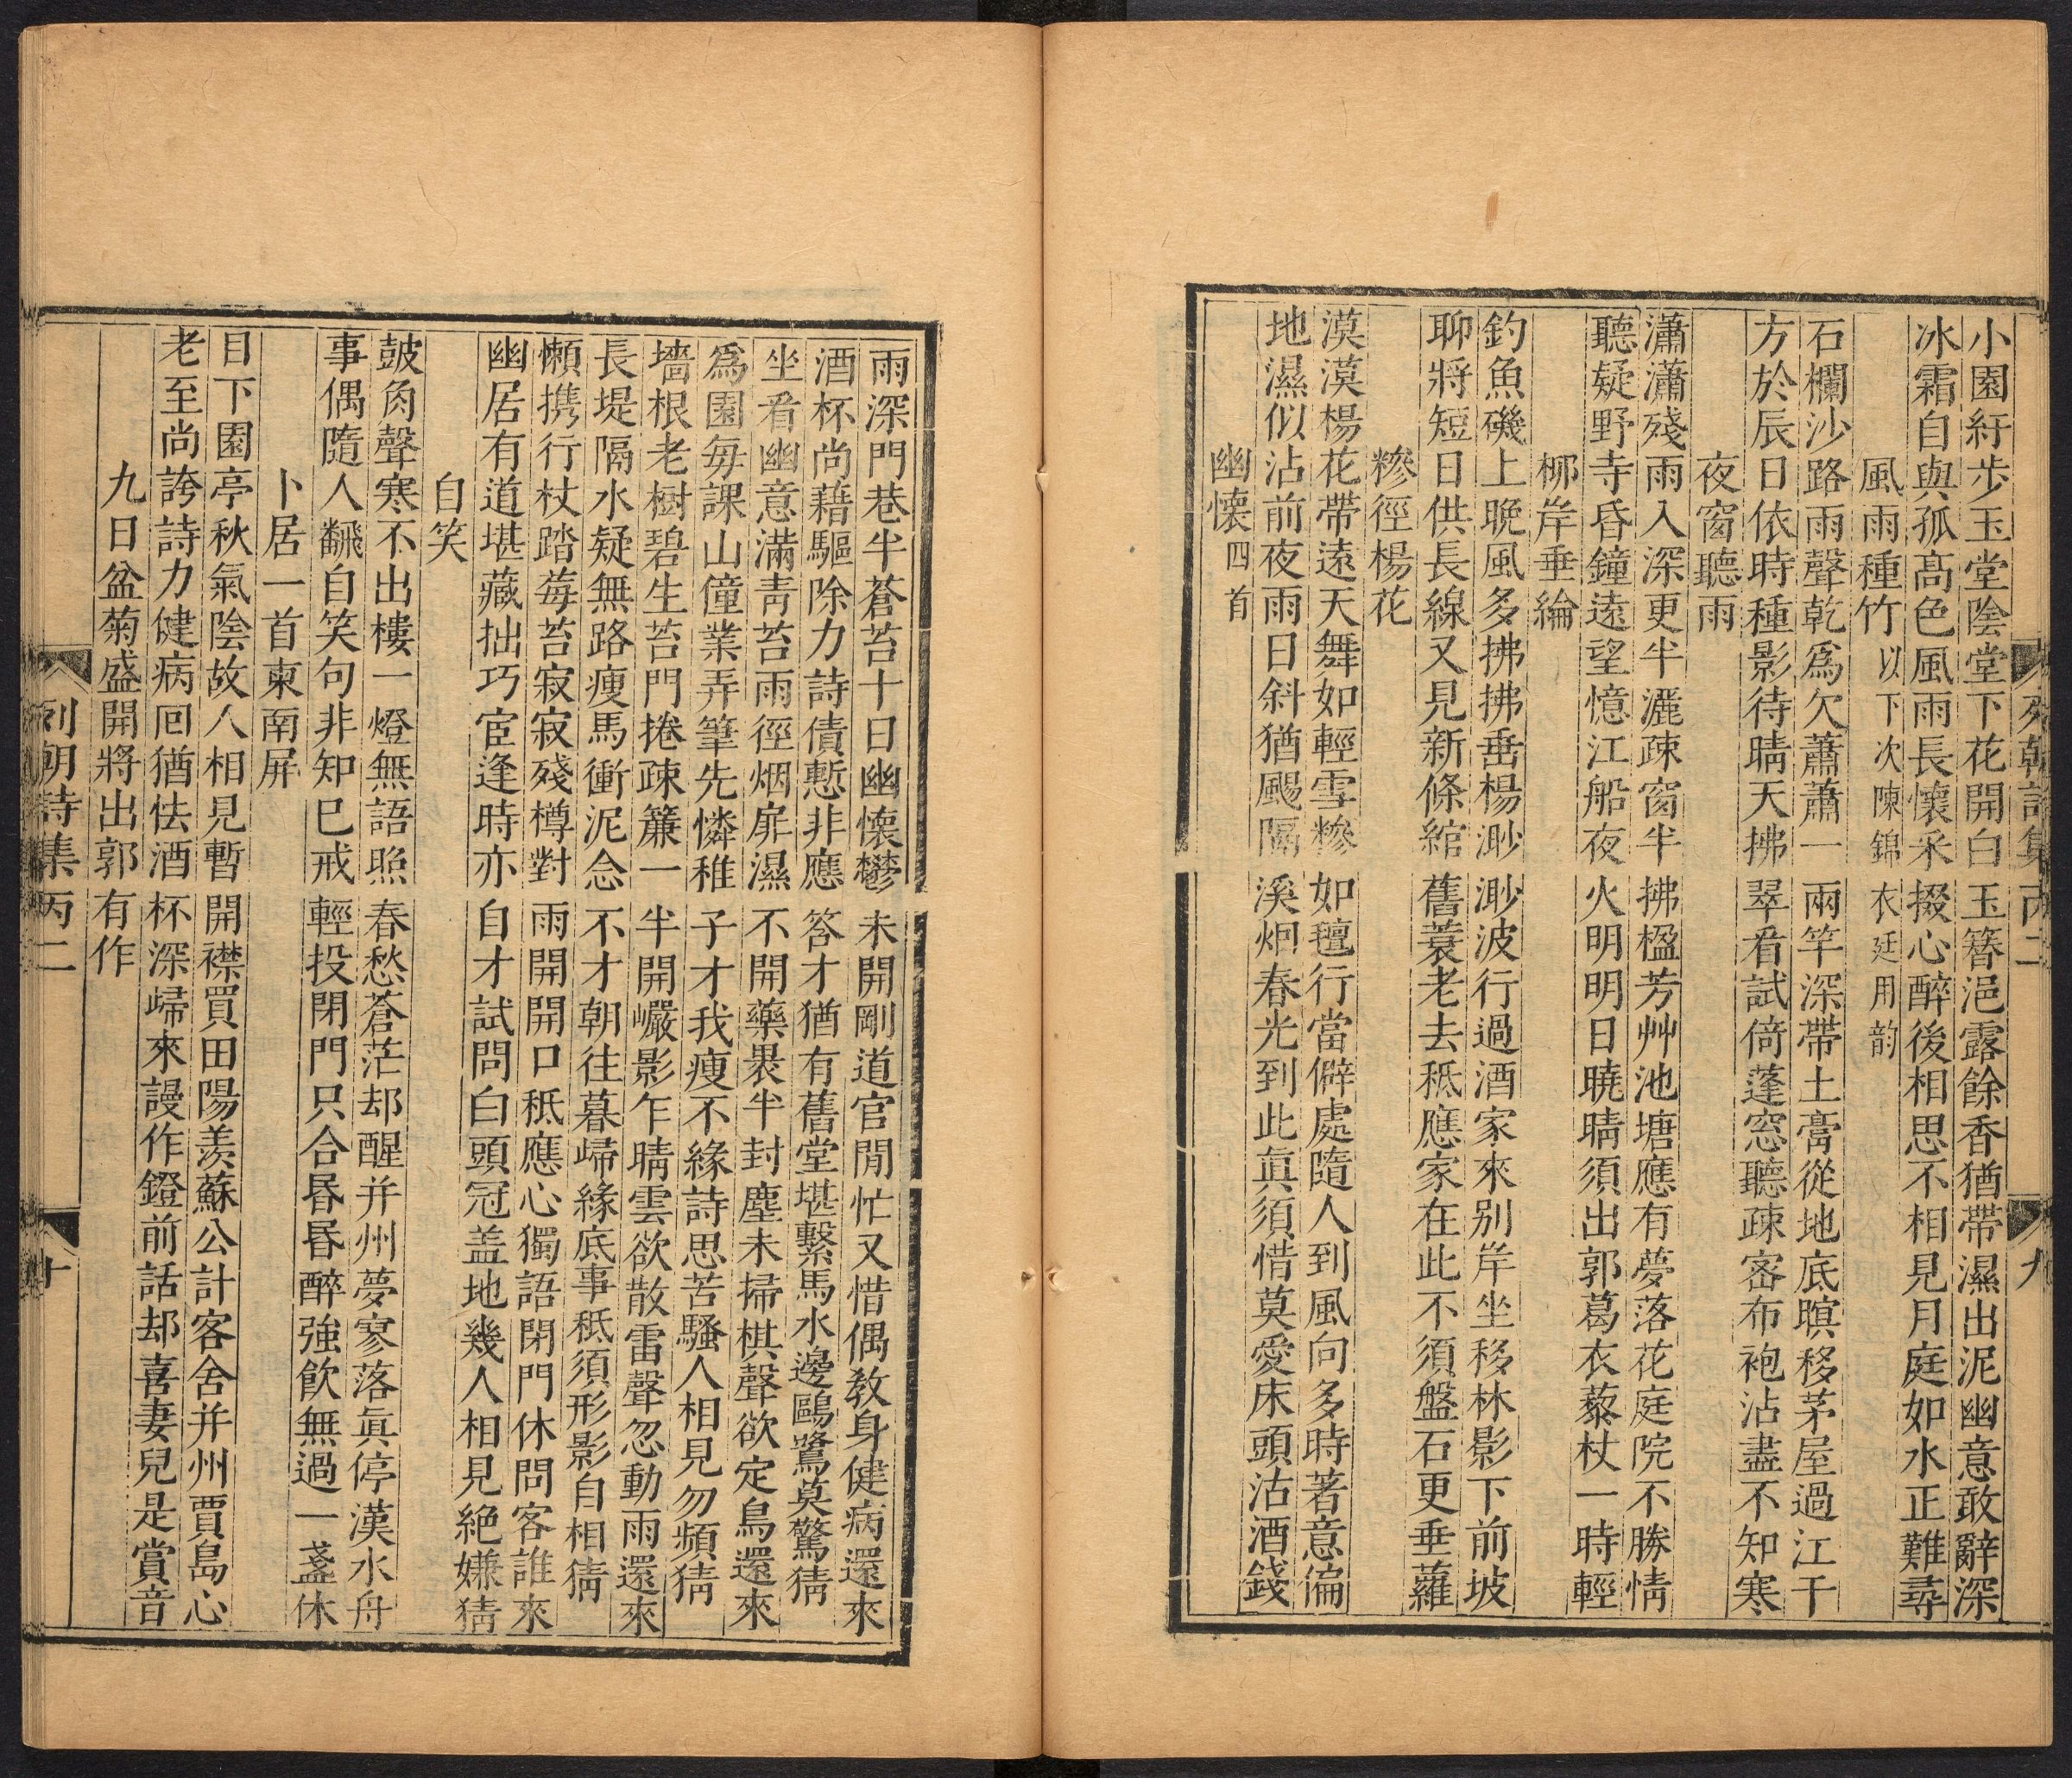 列朝詩集丙二 九
小園紆步玉堂陰堂下花開白玉簪浥露餘香猶帶濕出泥幽意敢辭深
冰霜自與孤高色風雨長懷采掇心醉後相思不相見月庭如水正難尋
風雨種竹以下次陳錦衣廷用韵
石欄沙路雨聲乾爲欠蕭蕭一兩竿深帶土膏從地底暝移茅屋過江干
方於辰日依時種影待晴天拂翠看試倚蓬窓聽疎密布袍沾盡不知寒
夜窗聽雨
瀟瀟殘雨入深更半灑疎窗半拂楹芳艸池塘應有夢落花庭院不勝情
聽疑野寺昏鐘遠望憶江船夜火明明日曉晴須出郭葛衣藜杖一時輕
柳岸垂綸
釣魚磯上晚風多拂拂垂楊渺渺波行過酒家來别岸坐移林影下前坡
聊將短日供長線又見新條綰舊蓑老去秪應家在此不須盤石更垂蘿
糝徑楊花
漠漠楊花帶遠天舞如輕雪糝如氊行當僻處隨人到風向多時著意偏
地濕似沾前夜雨日斜猶颺隔溪烟春光到此眞須惜莫愛床頭沽酒錢
幽懷四首
雨深門巷半蒼苔十日幽懷鬱未開剛道官閒忙又惜偶敎身健病還來
酒杯尚藉驅除力詩債慙非應答才猶有舊堂堪繫馬水邊鷗鷺莫驚猜
坐看幽意滿靑苔雨徑烟扉濕不開藥裹半封塵未掃棋聲欲定鳥還來
爲園每課山僮業弄筆先憐稚子才我瘦不緣詩思苦騷人相見勿頻猜
墻根老樹碧生苔門捲疎簾一半開巖影乍晴雲欲散雷聲忽動雨還來
長堤隔水疑無路瘦馬衝泥念不才朝往暮歸緣底事秪須形影自相猜
懶携行杖踏莓苔寂寂殘樽對雨開開口秪應心獨語閉門休問客誰來
幽居有道堪藏拙巧宦逢時亦自才試問白頭冠盖地幾人相見絶嫌猜
自笑
皷角聲寒不出樓一燈無語照春愁蒼茫却醒并州夢寥落眞停漢水舟
事偶隨人飜自笑句非知已戒輕投閉門只合昬昬醉強飮無過一盞休
卜居一首柬南屏
目下園亭秋氣陰故人相見暫開襟買田陽羡蘇公計客舍并州賈島心
老至尚誇詩力健病囘猶怯酒杯深歸來謾作鐙前話却喜妻兒是賞音
九日盆菊盛開將出郭有作
列朝詩集丙二 十